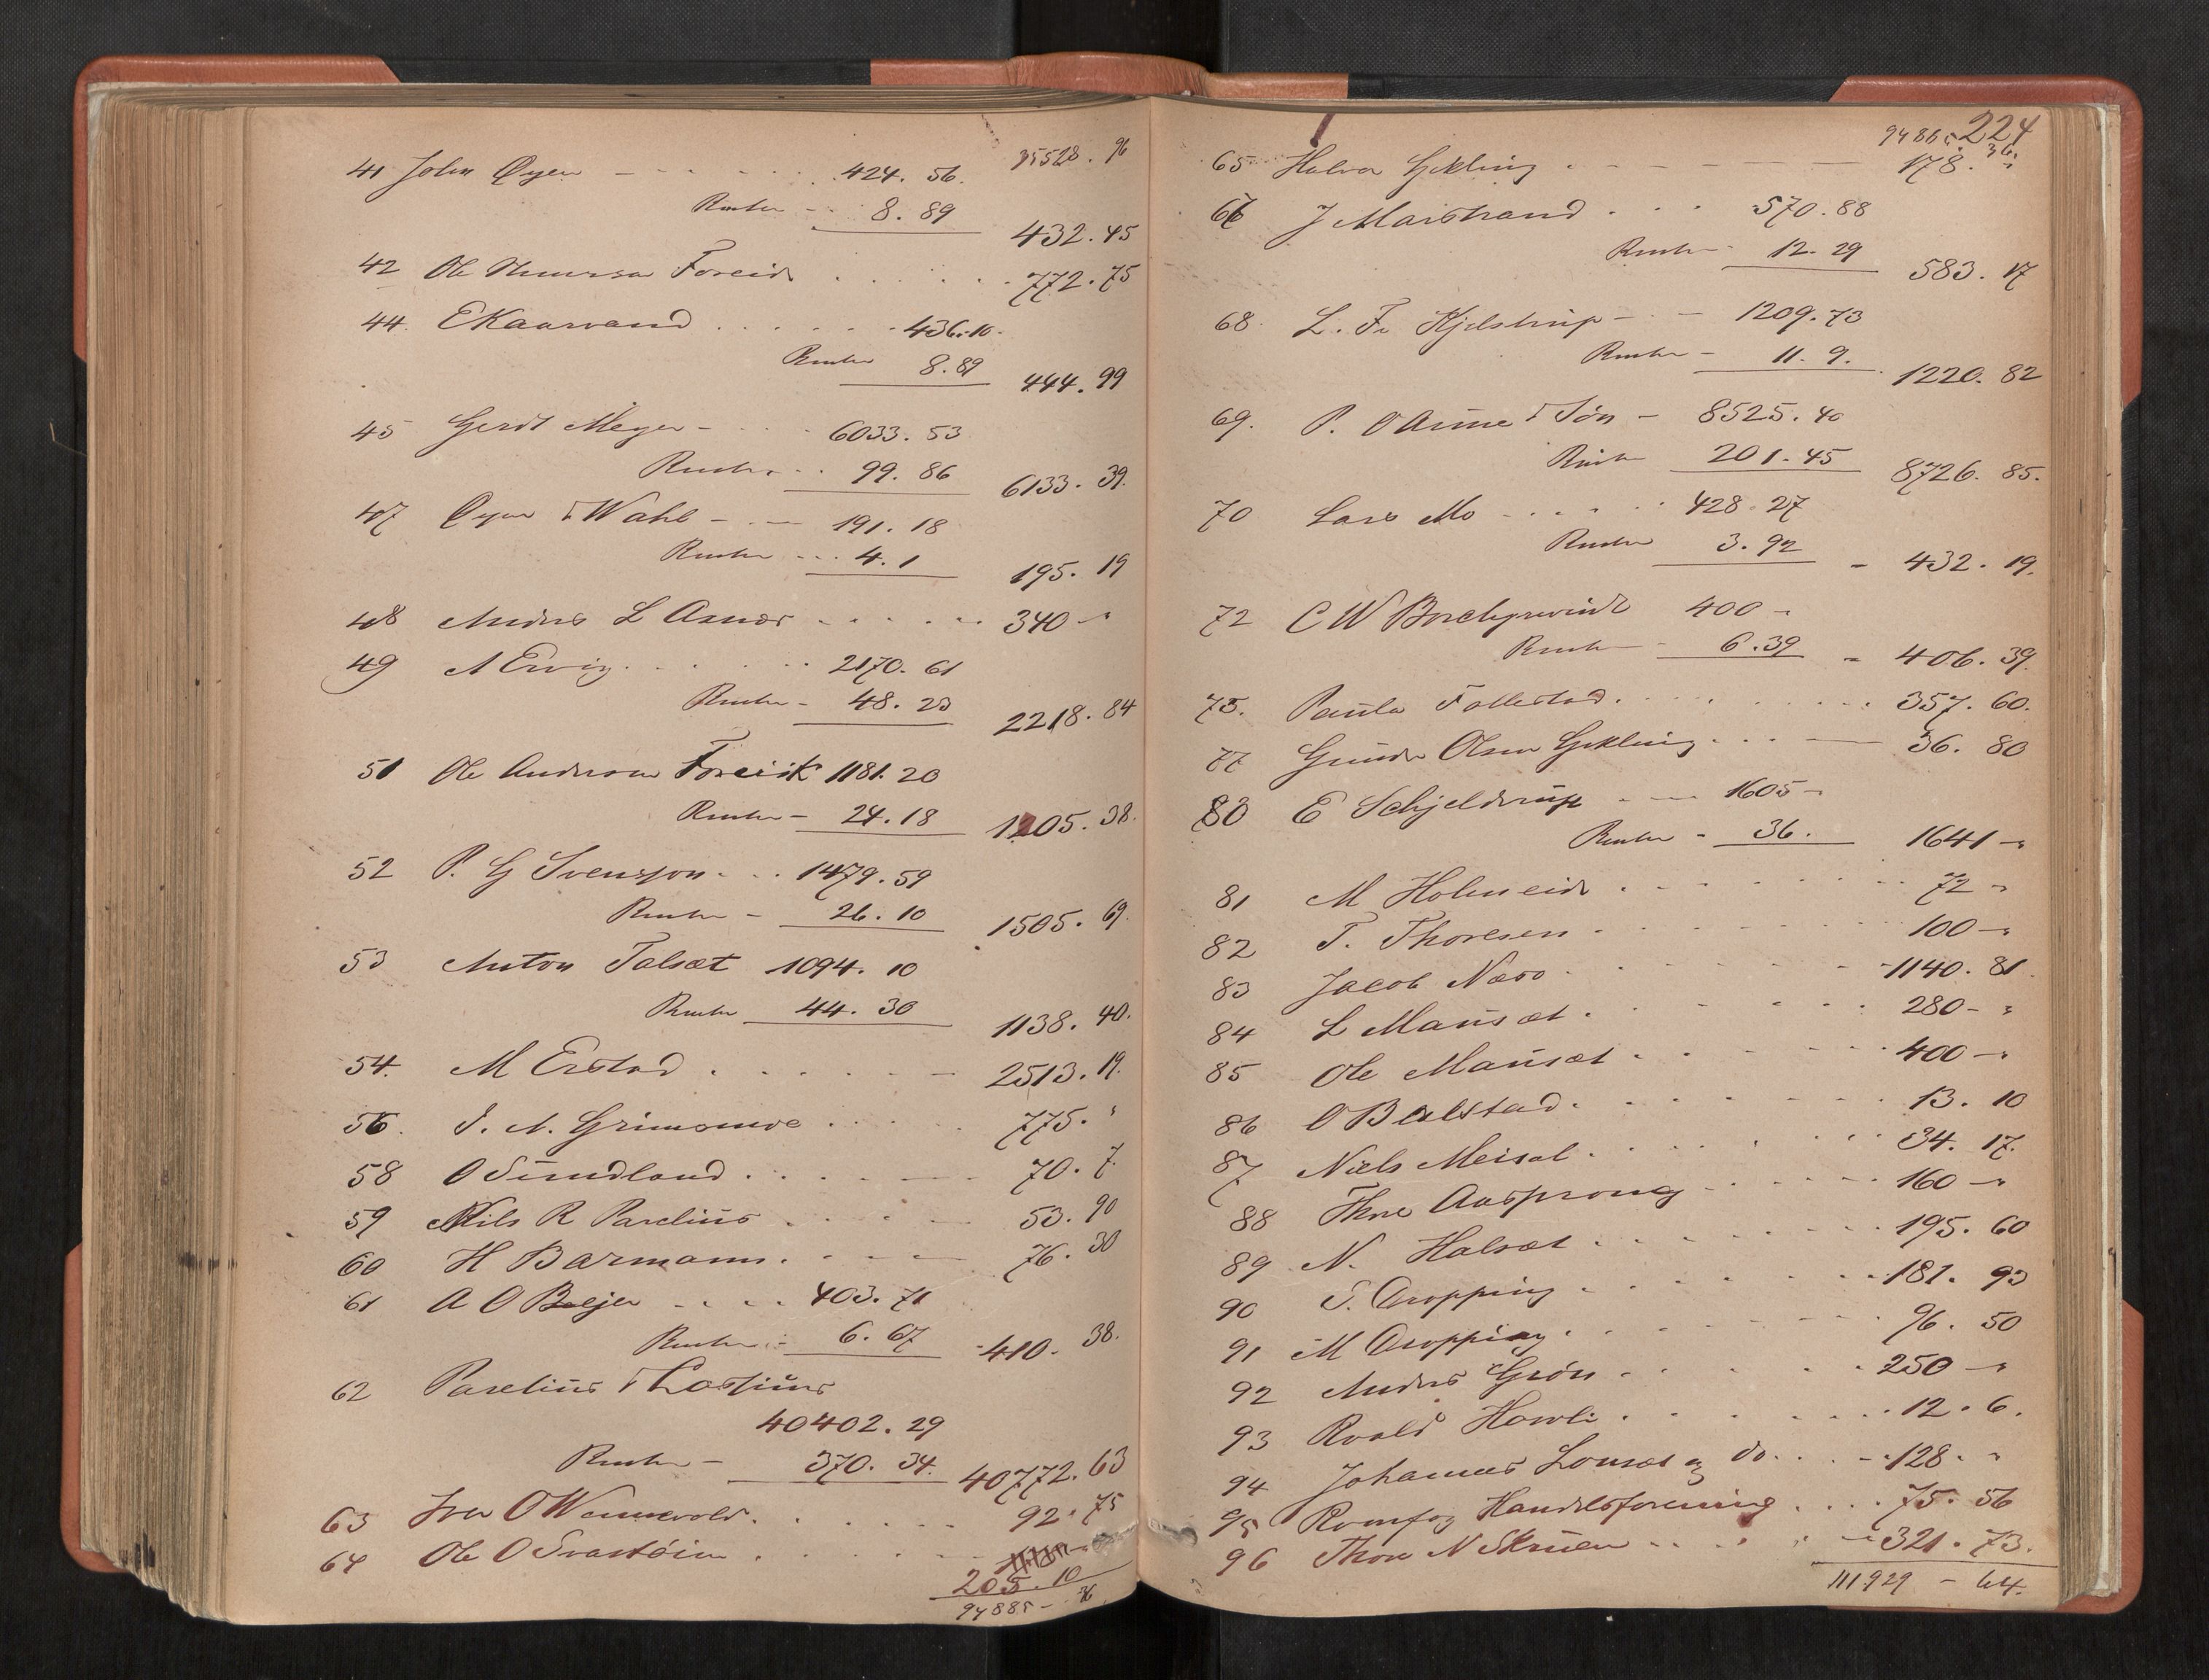 35528. 96
41 John Øyen - - - - 424. 56.
Renter - 8. 89
432. 45
42 Ole Foreid . . . . . 772. 75
44. E Kaarvand . . . . - 436. 10 -
Renter 8. 89
444. 99
45 Gerdt Meyer - - - 6033. 53
Renter - . 99. 86 6133. 39.
47 Øyen & Wahl - - - 191. 18
Renter - . . 4. 1
195. 19
48 Anders L Asnæs - . - . . . 340 - "
49 A Ervig . . . . . 2170. 61
Renter - 48. 23
2218. 84
51 Ole Anderson Foreid 1181. 20
Renter - 24. 18 1205. 38.
52 P. G Svensson - . . 1479. 59
Renter - 26. 10 1505. 69.
53 Anton Talsæt 1094. 10
Renter 44. 30
1138. 40.
54. M Erstad . . . . . - 2513. 19.
56. J. A. Grimsmoe . . . . . 775. "
58 O Sundland . . . . - 70. 7.
59 Nils R Parelius . . . . - 53. 90
60 H Barmann . . - - 76. 30
61 A O Bøejer - . . . 403. 71
Renter - 6. 67 410. 38.
62 Parelius & Lossius
40402. 29
Renter - 370. 34. 40772. 63
63 Iver O Wennevold . . . . . 92. 75
64 Ole O Svartøien . . . . . -
205. 10
94885 - 36
224
94885. 36
65 Halvor Gikling . - - - - 178. "
66 J Maistrand . . . 570. 88
Renter - 12. 29
583. 17
68. L. Fr Kjelstrup - - - 1209. 73
Renter - 11. 9.
1220. 82
69. P. O Aune & Søn - 8525. 40
Renter 201. 45 8726. 85.
70 Lars Mo - . . . . 428. 27
Renter 3. 92
- 432. 19.
72 C W Borchgrevink 400 -
Renter - 6. 39 - 406. 39.
75. Paula Follestad . . . . . . . 357. 60.
77 Gunder Olsen Gikling . . . - 36. 80
80 E Schjelderup . - - 1605 -
Renter - 36. 1641 - "
81 M Holmeide . . . . . . 72 - "
82 T. Thoresen . . . . . . 100 - "
83 Jacob Næss . . . . . - 1140. 81.
84 L Mausæt . . . . . . 280 - "
85 Ole Mausæt . . . . . - 400 - "
86 O Bælstad . . . . . - 13. 10
87 Niels Meisal . . . . . . 34. 17.
88 Thore Aasprong . . . . - 160 - "
89 N. Halsæt . . . . . . 195. 60
90 S. Dropping . . . . . - 181. 93
91 M Dropping . . . . . - 96. 50
92 Anders Grøn . . . . . 250 - "
93 Roald Horvli . . . . . . 12. 6.
94 Johannes Lonsæt og do . . . - 128. "
95 Romfog Handelsforening . . . . 75. 56
96 Thore N Skruen . . . . . - 321. 73.
111929 - 64.